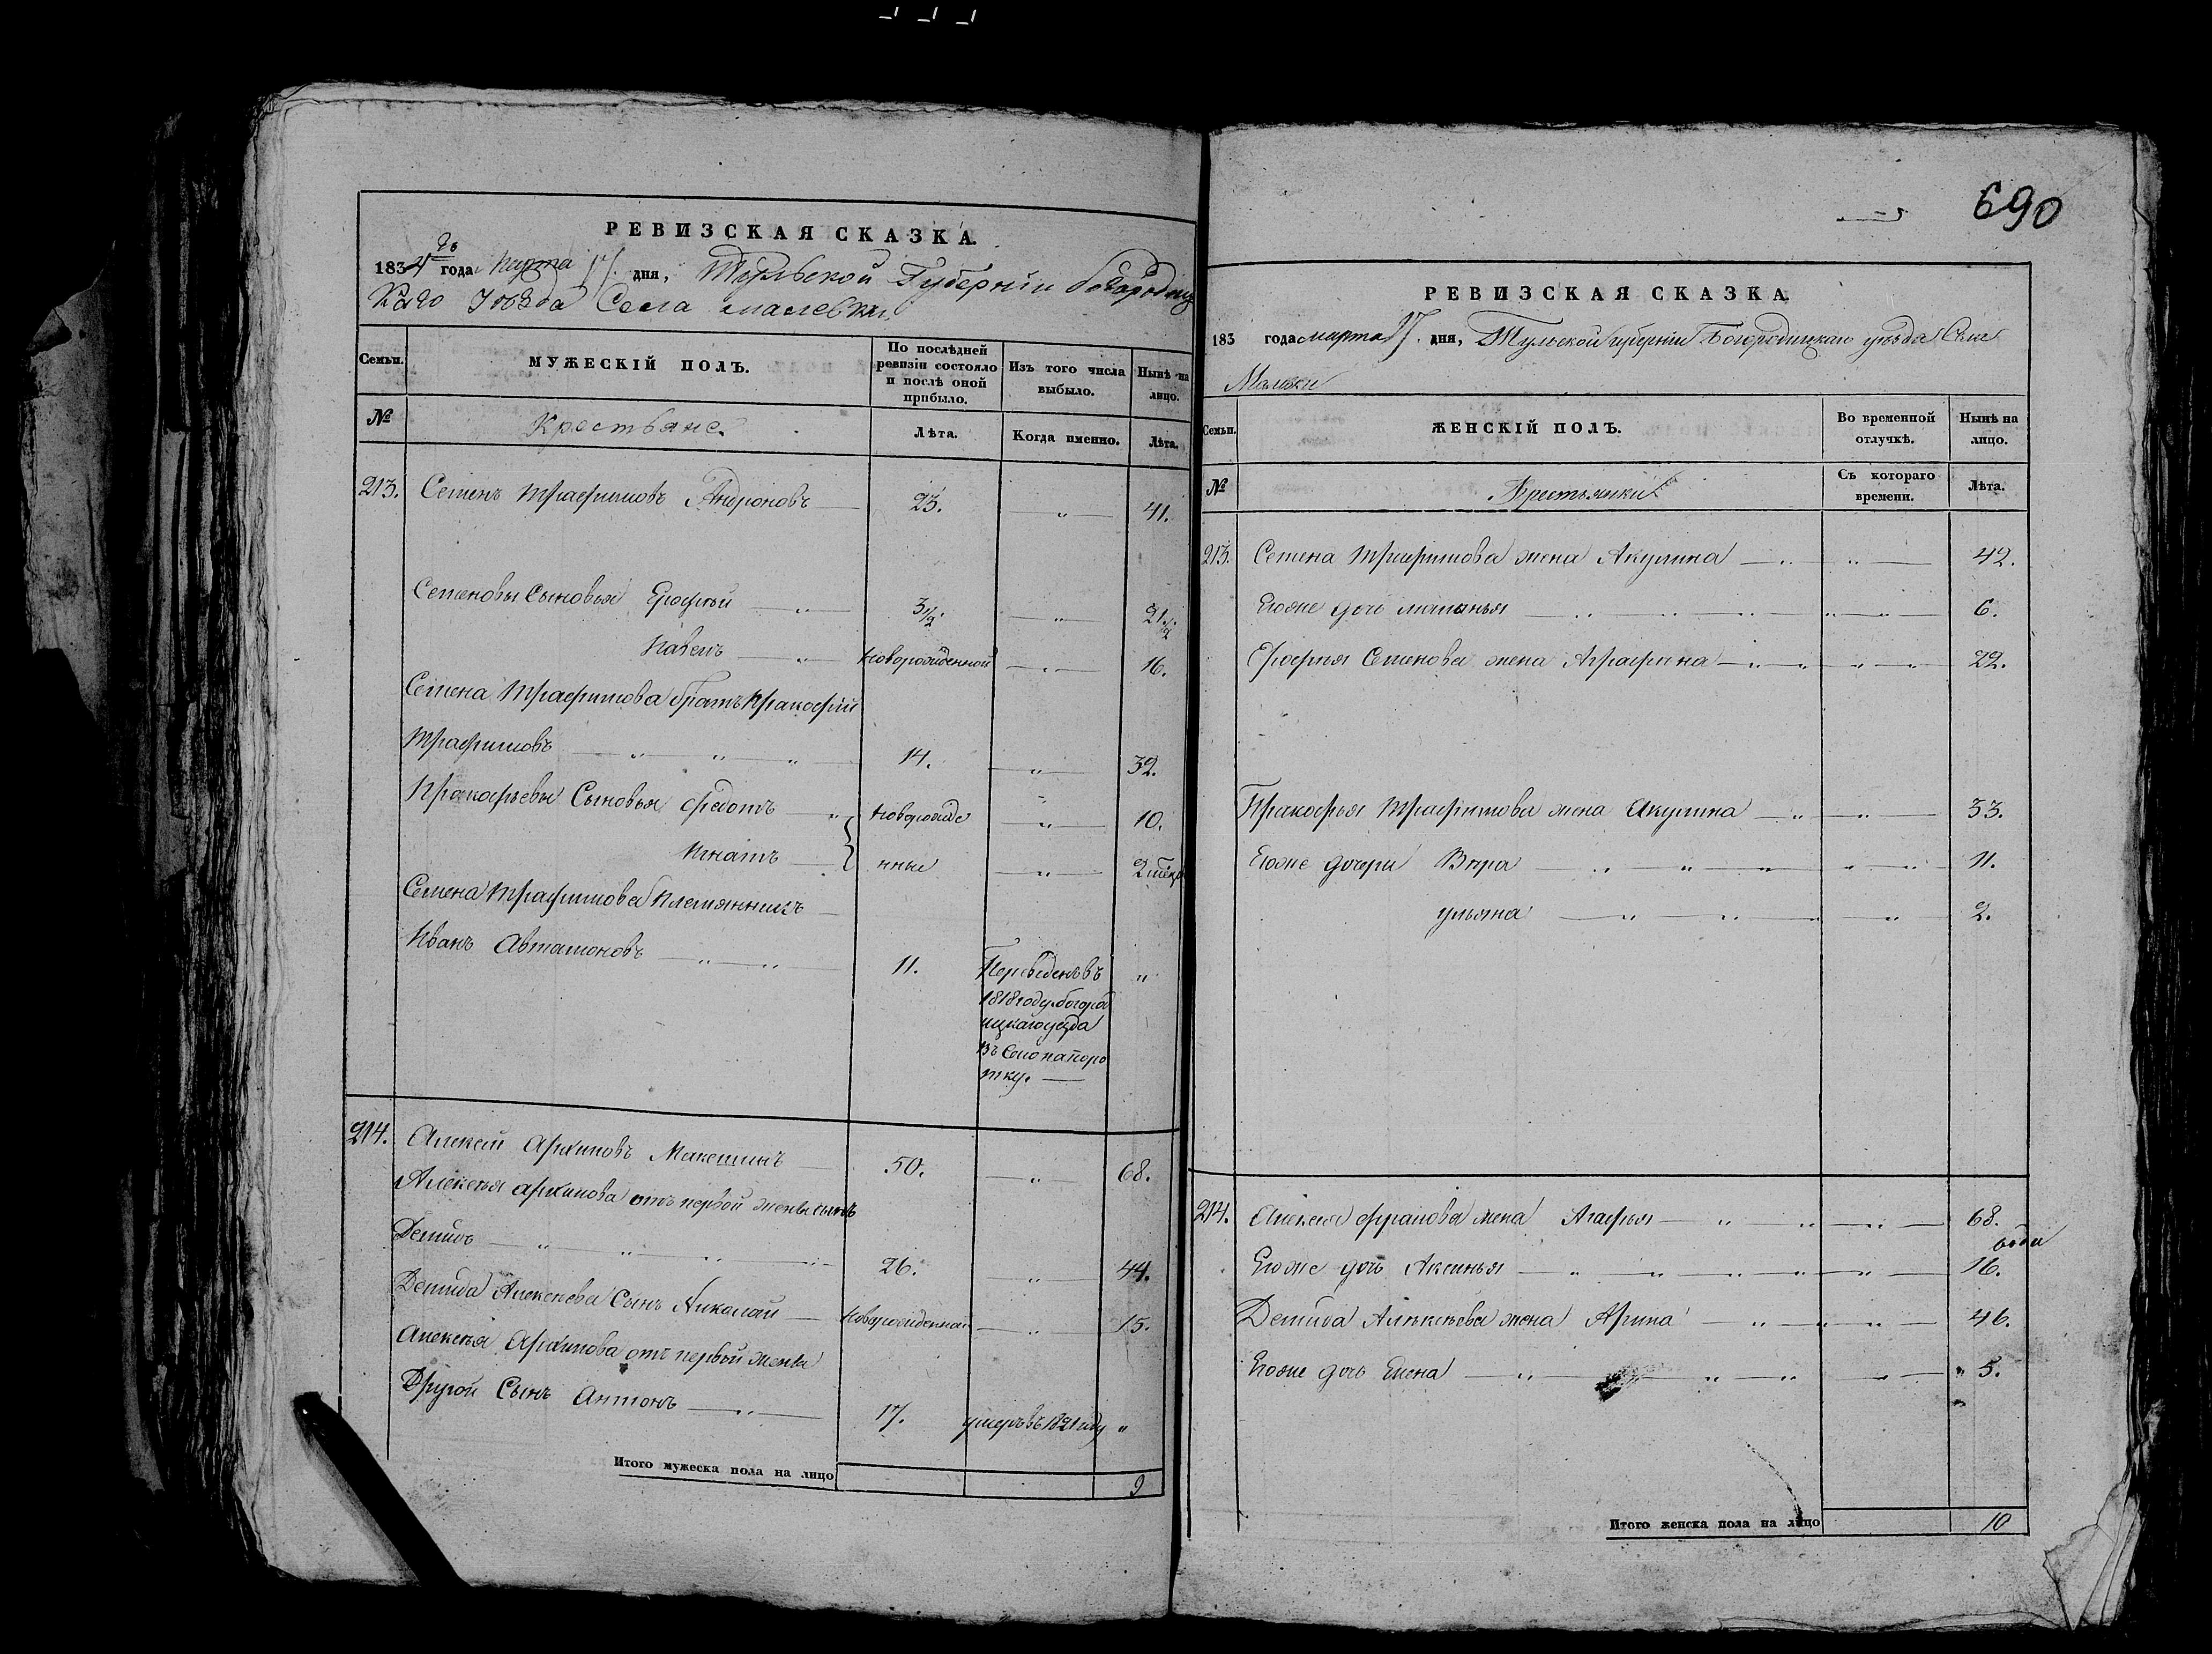 РЕВИЗСКАЯ СКАЗКА.
1834го года марта 17. дня, Тульской Губернiи богородиц
Каго Уѣзда Села малевки
Семьи. МУЖЕСКІЙ ПОЛЪ. По послѣдней ревизіи состояло и послѣ оной прибыло. Изъ того числа выбыло. Нынѣ на лицо.
№ Крестьяне. Лѣта. Когда именно. Лѣта.
213. Семенъ Трафимовъ Андроновъ 23. 41.
Семеновы Сыновья Ерофѣй 3 1/2. 21. 1/2
Павелъ Новорожденной 16.
Семена Трафимова братъ Пракофiй
Трафимовъ 14. 32.
Пракофьевы Сыновья Федотъ Новорожде 10.
Игнатъ нные 2 меся
Семена Трафимова Племянникъ
Иванъ Автамоновъ 11. Переведенъ въ
1818 году богород
ицкаго уезда
въ Село папоро
тку.
214. Алексей Архиповъ Макешинъ 50. 68.
Алексея архипова отъ первой жены сынъ
Демидъ 26. 44.
Демида Алексеева Сынъ Николай Новорожденной 15.
Алексея Архипова отъ первой жены
Другой Сынъ Антонъ 17. умеръ въ 1821 году
Итого мужеска пола на лицо 9
690
РЕВИЗСКАЯ СКАЗКА.
183 года марта 17. дня, Тульской губернiи Богородицкаго уѣзда Села
Малевки
Семьи. ЖЕНСКІЙ ПОЛЪ. Во временной отлучкѣ. Нынѣ на лицо.
№ Крестьянки Съ котораго времени. Лѣта.
213. Семена Трафимова жена Акулина 42.
Егоже дочь маланья 6.
Ерофея Семенова жена Аграфина 22.
Пракофья Трафимова жена Акулина 33.
Егоже дочери Вера 11.
ульяна 2.
214. Алексея жена Агафья 68.
Егоже дочь Аксинья 16.
Демида Алексѣева жена Арина 46.
Егоже дочь Елена 5.
Итого женска пола на лицо 10